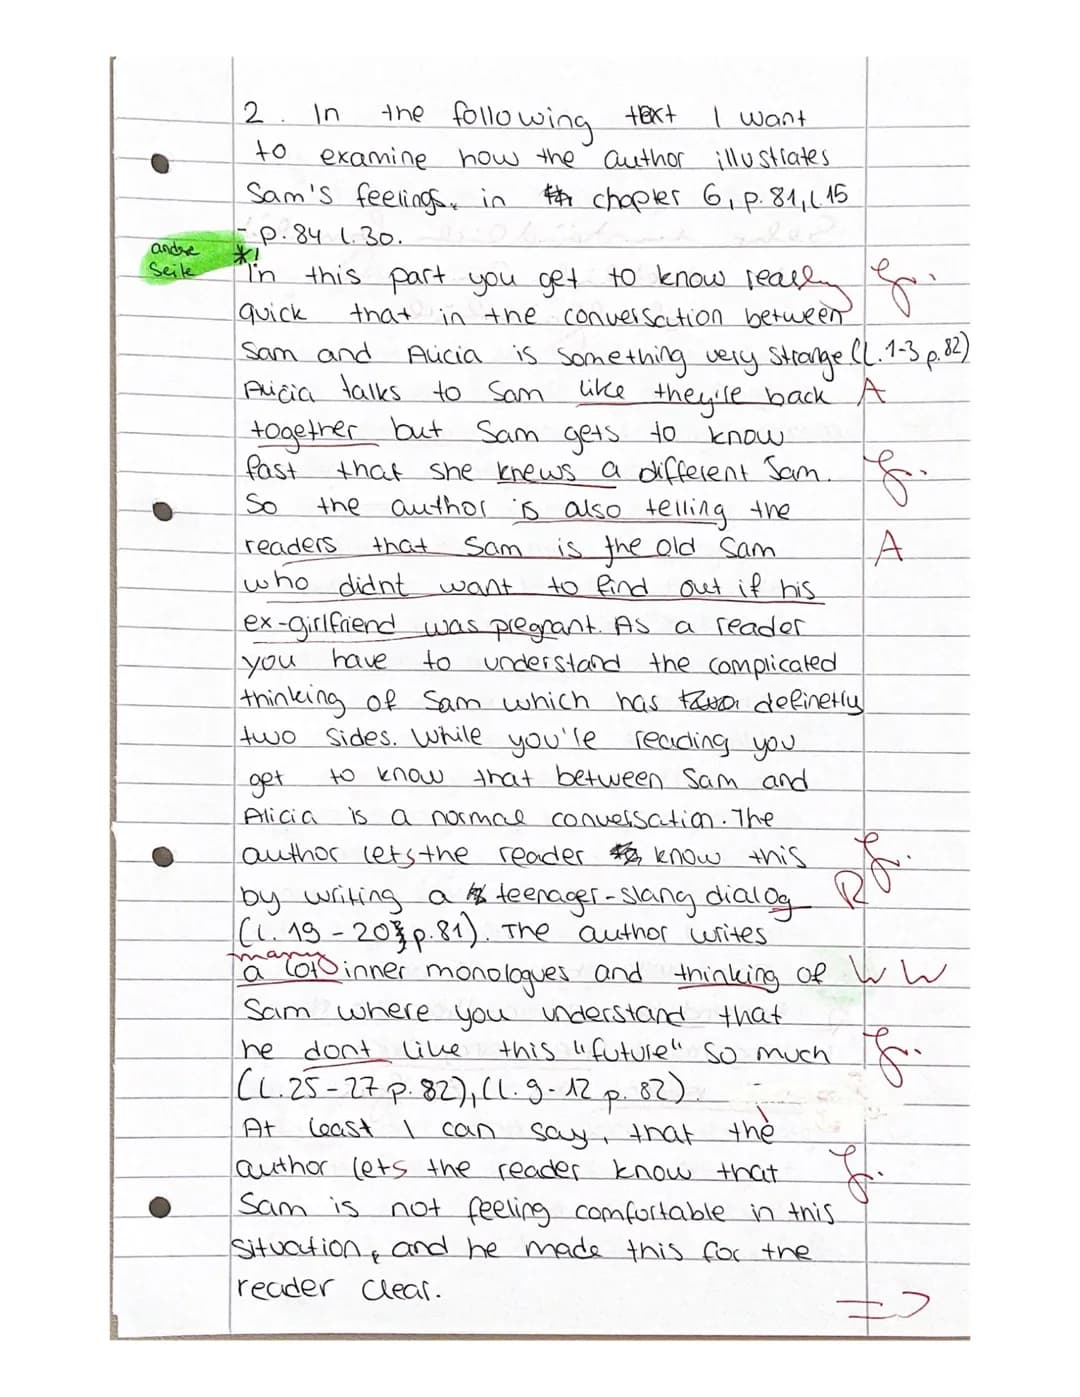 2. In the following text I want
to examine how the author illustrates
Sam's feelings, in chapter 6, p. 81, l. 15
- p. 84 l. 30.
andre
Seite
*!
In this part you get to know really
quick that in the conversation between
Sam and Alicia is something very strange (l. 1-3 p. 82)
Alicia talks to Sam like they're back A
together but Sam gets to know
fast that she knews a different Sam.
So the author is also telling the
readers that Sam is the old Sam A
who didnt want to find out if his
ex-girlfriend was pregnant. As a reader
you have to understand the complicated
thinking of Sam which has definetly
two sides. While you're reading you
get to know that between Sam and
Alicia is a normal conversation. The
author lets the reader know this
by writing a teenager-slang dialog R
(l. 19 - 20 p. 81). The author writes
many
a lot inner monologues and thinking of W W
Sam where you understand that
he dont like this "future" so much
(l. 25-27 p. 82), (l. 9-12 p. 82).
At least I can say, that the
author lets the reader know that
Sam is not feeling comfortable in this
situation, and he made this for the
reader clear.
=>